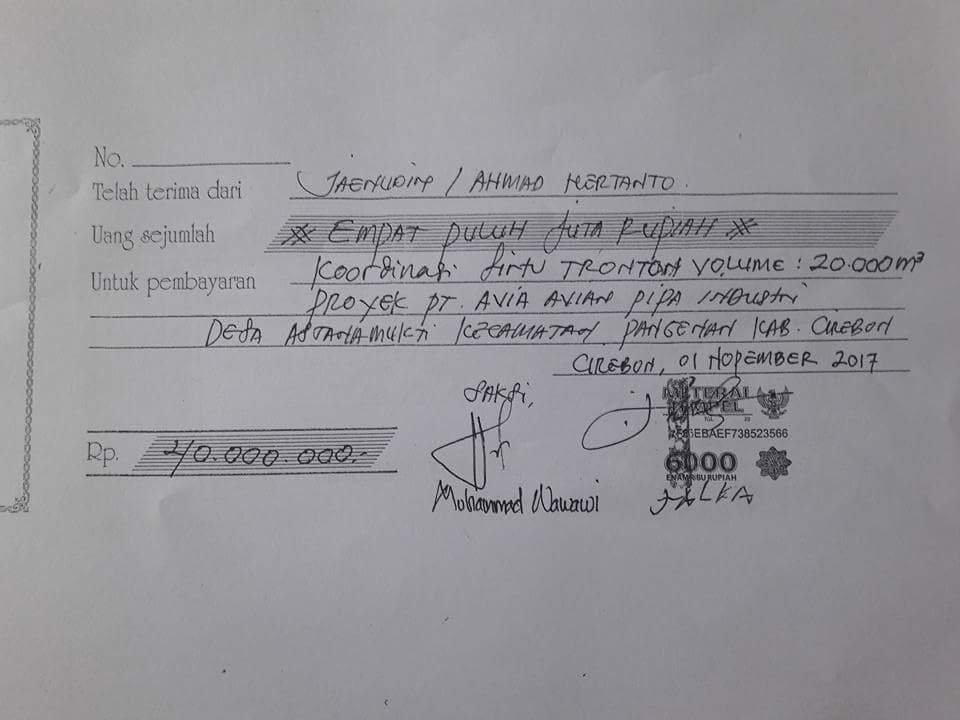 No.
Telah terima dari JAENUDIN / AHMAD HERTANTO.
Uang sejumlah EMPAT PULUH JUTA RUPIAH
Untuk pembayaran Koordinasi Sirtu TRONTON VOLUME : 20.000 m³
PROYEK PT. AVIA AVIAN PIPA INDUSTRI
DESA ASTANAMUKTI KECAMATAN PANGENAN KAB. CIREBON
CIREBON, 01 NOPEMBER 2017
SAKSI,
METERAI
TEMPEL
TGL. 20
EBAEF738523566
Rp. 40.000.000.-
6000
ENAM RIBU RUPIAH
Mohammad Nawawi